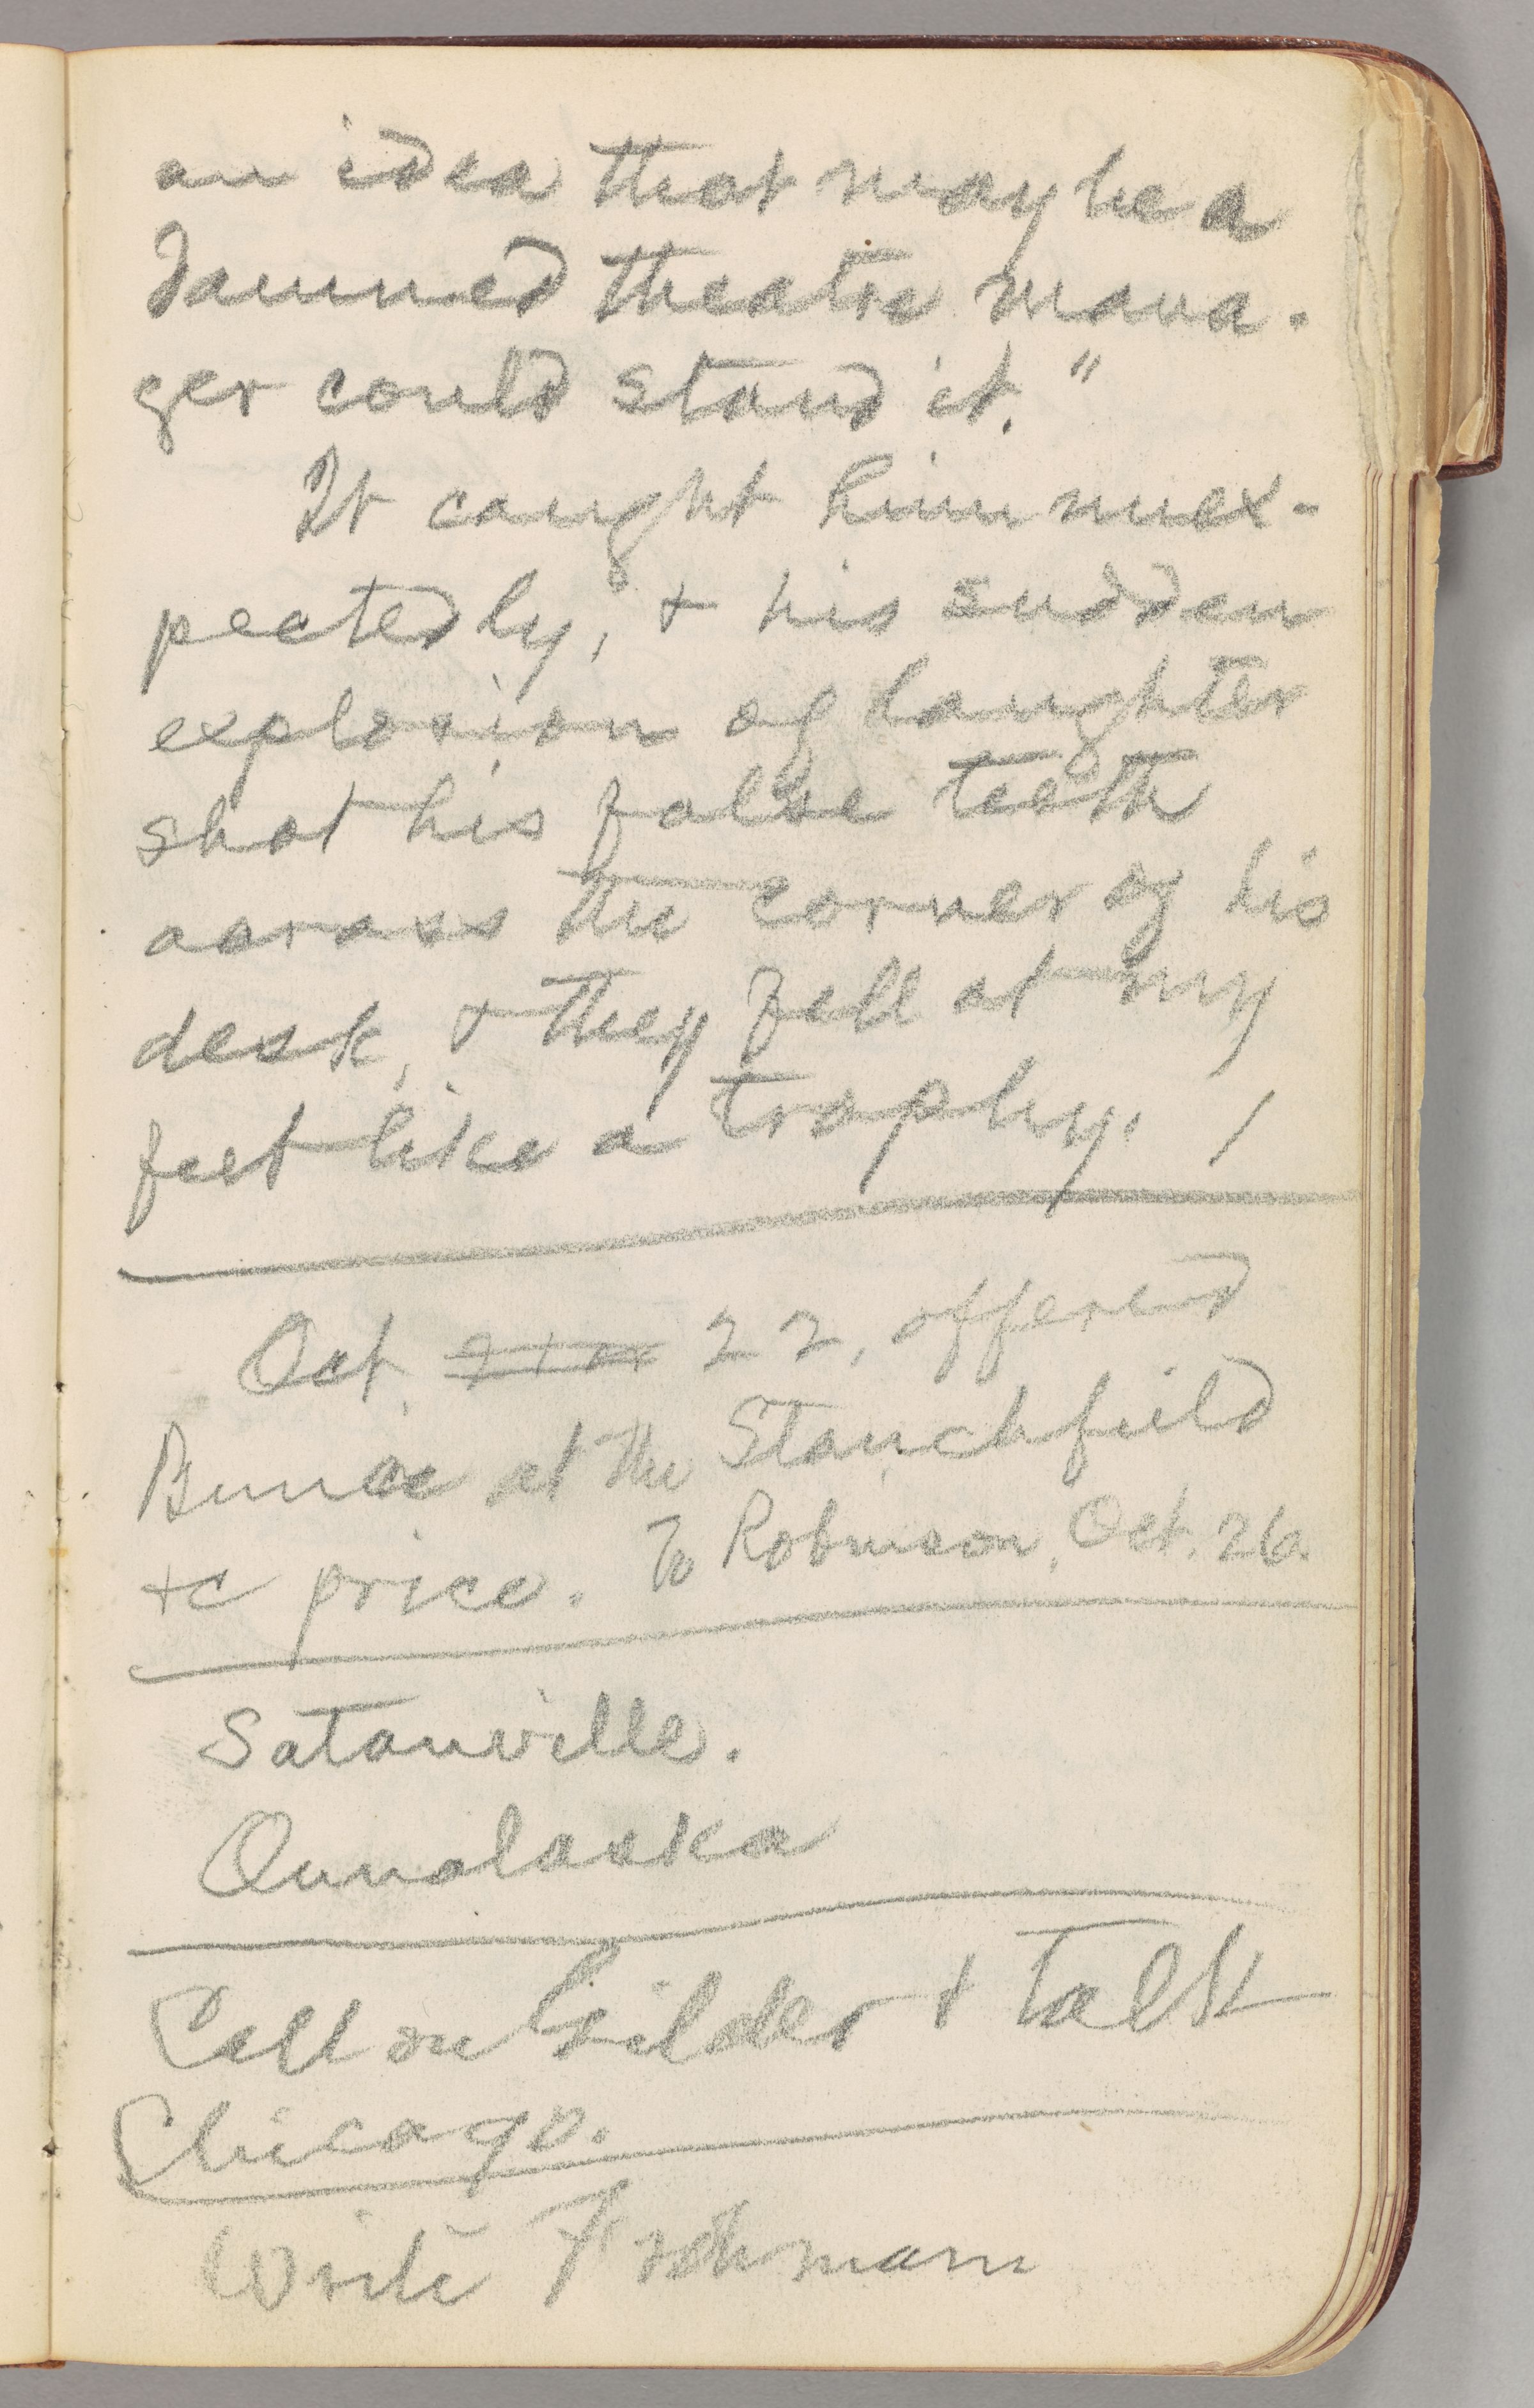 an idea that maybe a
damned theatre mana-
ger could stand it."
It caught him unex-
pectedly, & his sudden
explosion of laughter
shot his false teeth
across the corner of his
desk, & they fell at my
feet like a trophy. /
Oct. 22, offered
Bunce at the Stanchfield
&c price. To Robinson, Oct. 26.
Satanville.
Ounalaska
Call on Gilder & talk
Chicago.
Write Frohman